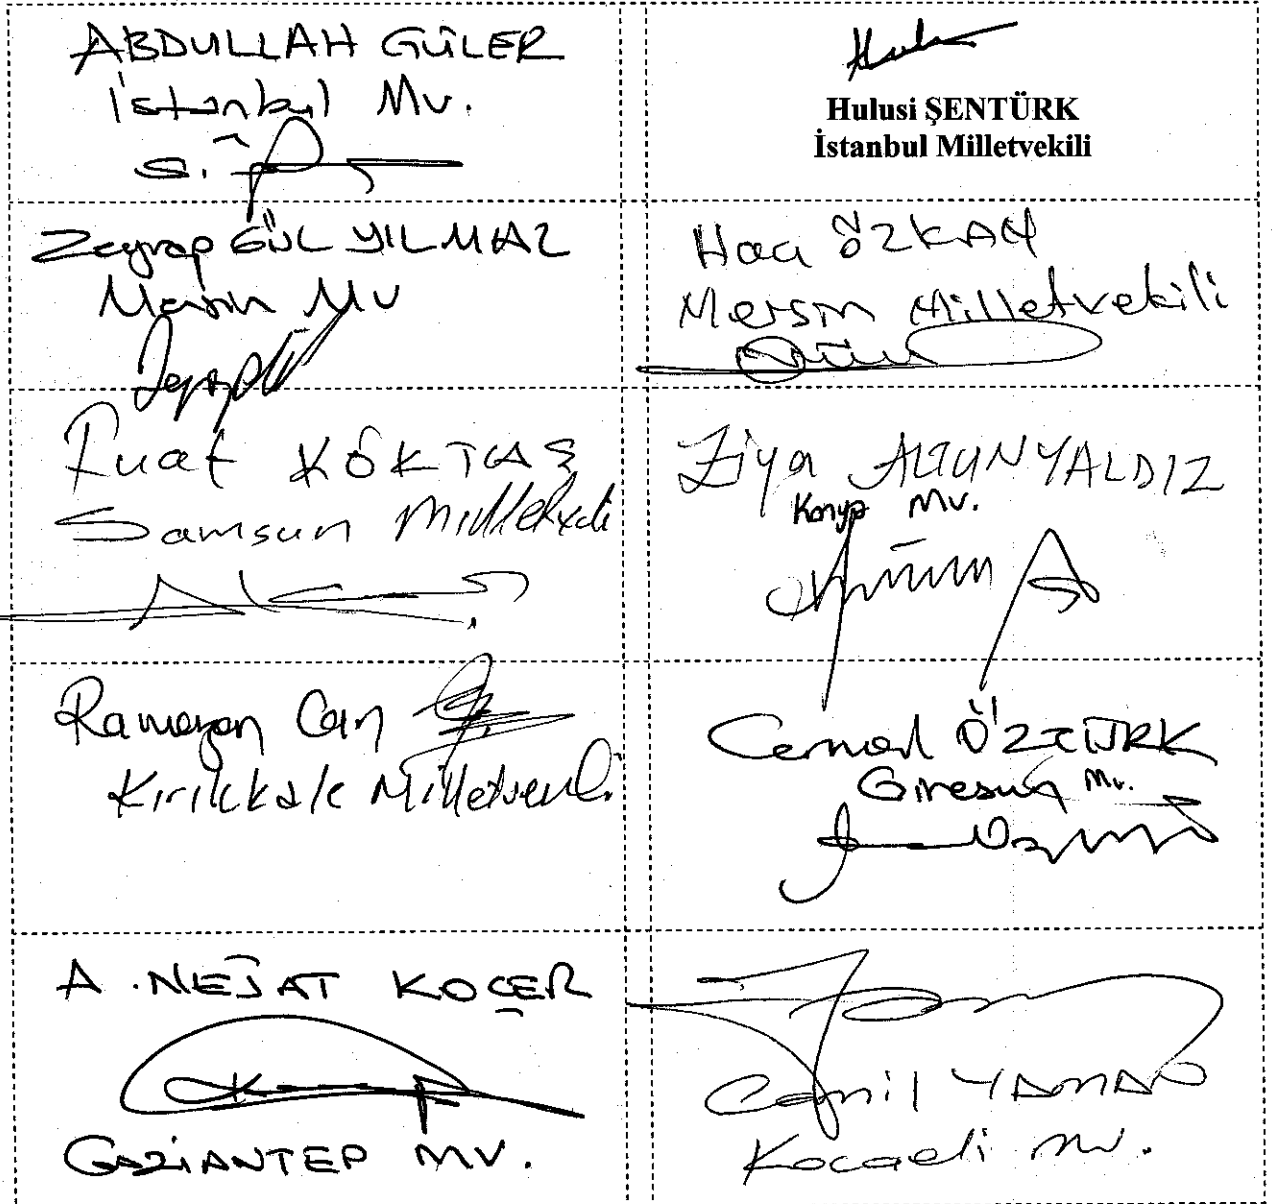 ABDULLAH GÜLER
İstanbul Mv.
Hulusi ŞENTÜRK
İstanbul Milletvekili
Zeynep GÜL YILMAZ
Mersin Mv
Hacı ÖZKAN
Mersin Milletvekili
Fuat KÖKTAŞ
Samsun Milletvekili
Ziya ALTUNYALDIZ
Konya Mv.
Ramazan Can
Kırıkkale Milletvekili
Cemal ÖZTÜRK
Giresun Mv.
A. NEJAT KOÇER
GAZİANTEP MV.
Cemil YAMAN
Kocaeli Mv.